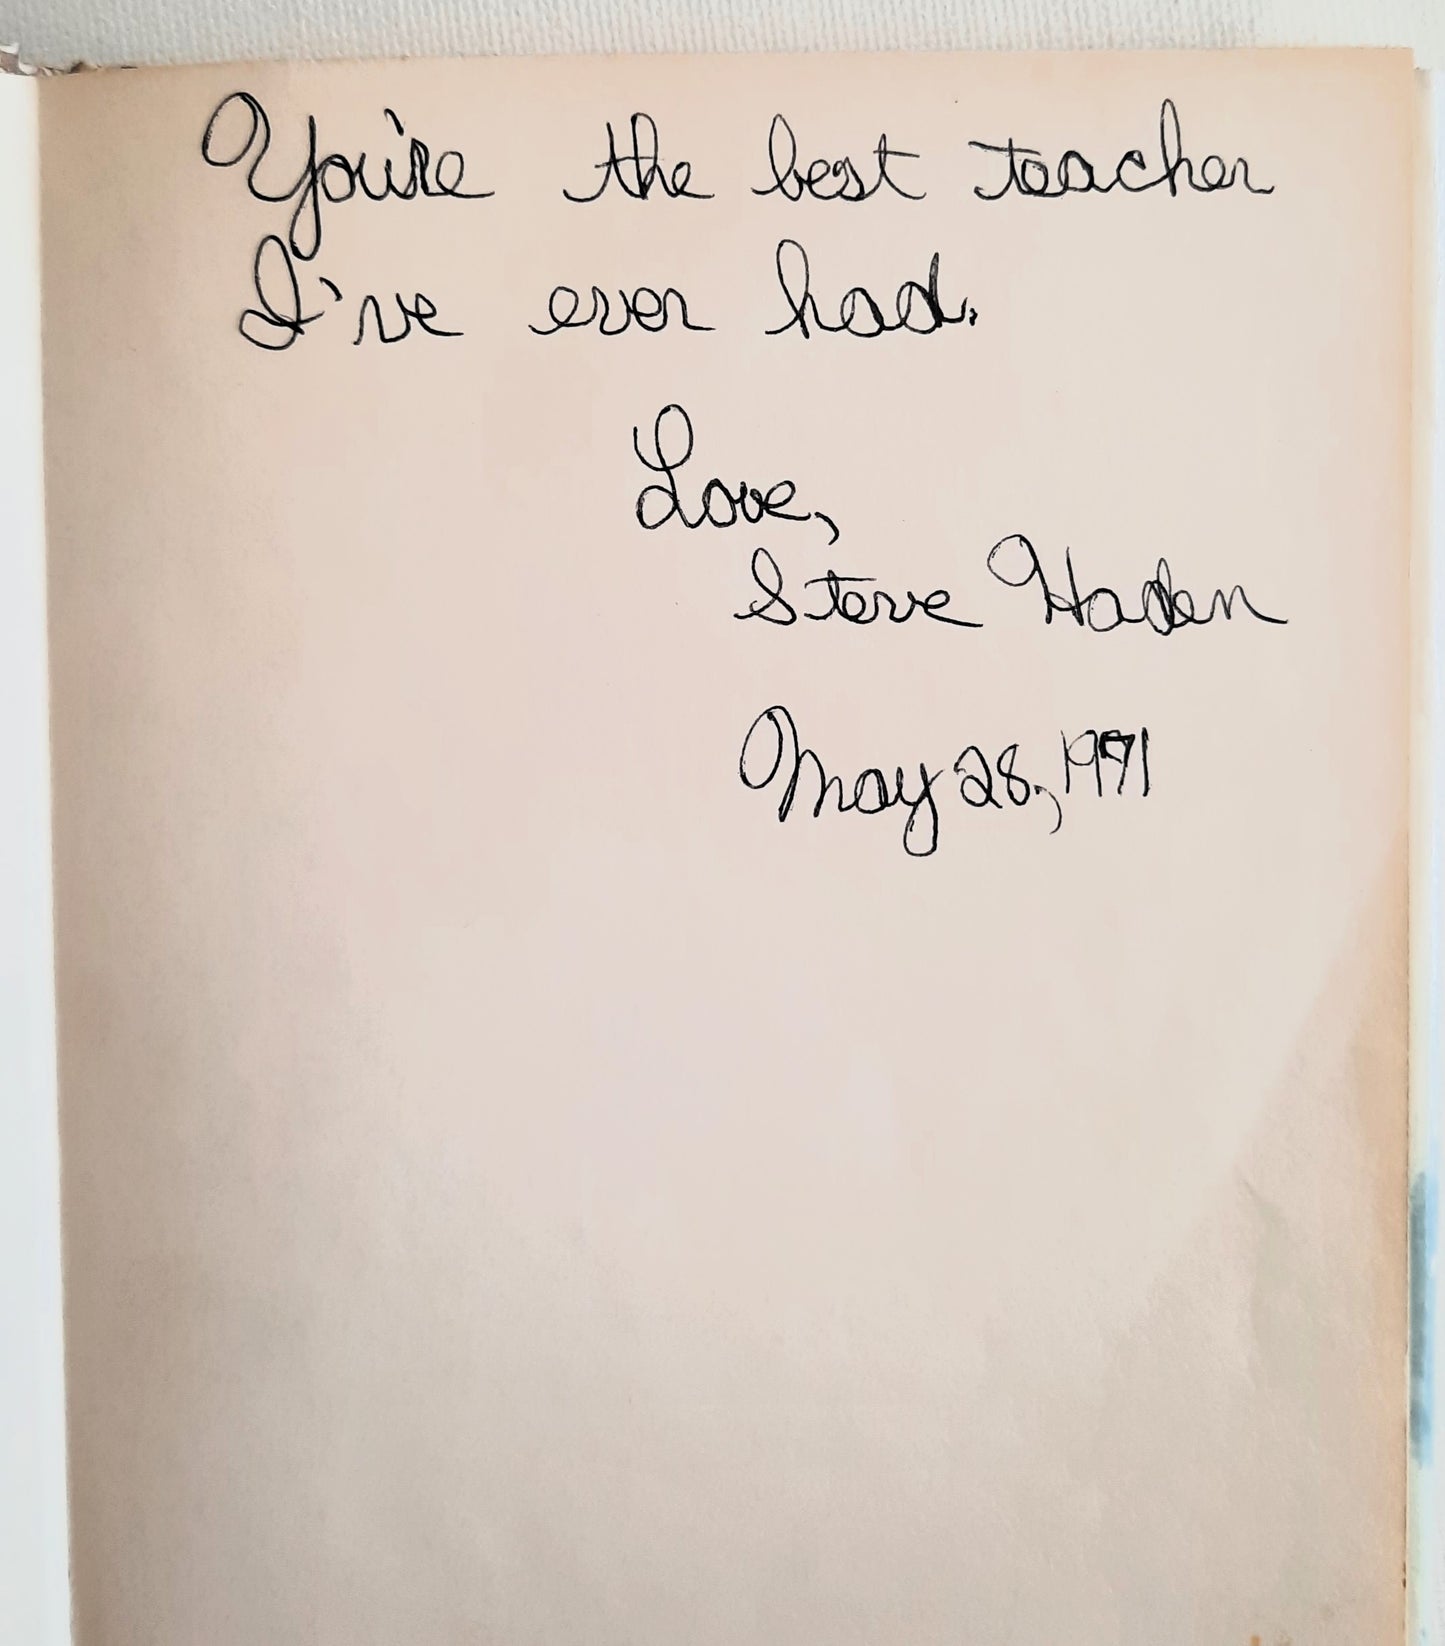 You're the best teacher
I've ever had.
Love,
Steve Haden
May 28, 1971